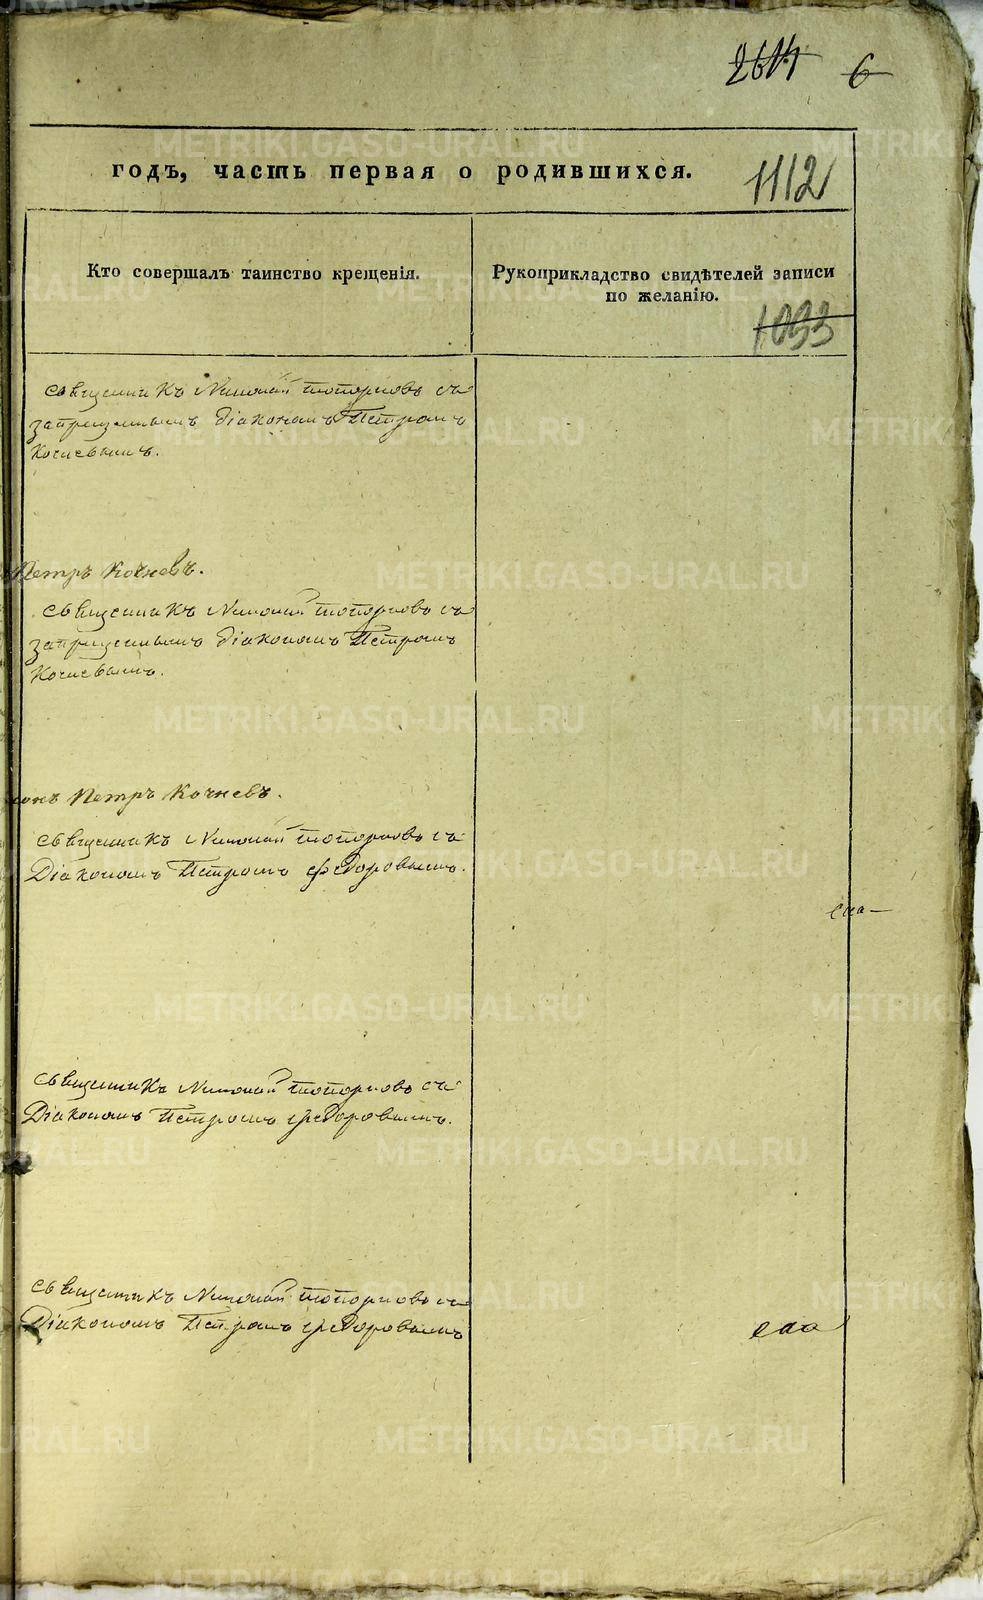 2614 6
годъ, часть первая о родившихся. 1112
Кто совершалъ таинство крещенія.
Рукоприкладство свидѣтелей записи
по желанію.
1033
священникъ Николай Топорковъ съ
запрещеннымъ діакономъ Петромъ
Кочневымъ.
Петръ Кочневъ.
священникъ Николай Топорковъ съ
запрещеннымъ діакономъ Петромъ
Кочневымъ.
Петръ Кочневъ.
священникъ Николай Топорковъ съ
Діакономъ Петромъ Федоровымъ.
священникъ Николай Топорковъ съ
Діакономъ Петромъ Федоровымъ.
священникъ Николай Топорковъ съ
Діакономъ Петромъ Федоровымъ
METRIKI.GASO-URAL.RU